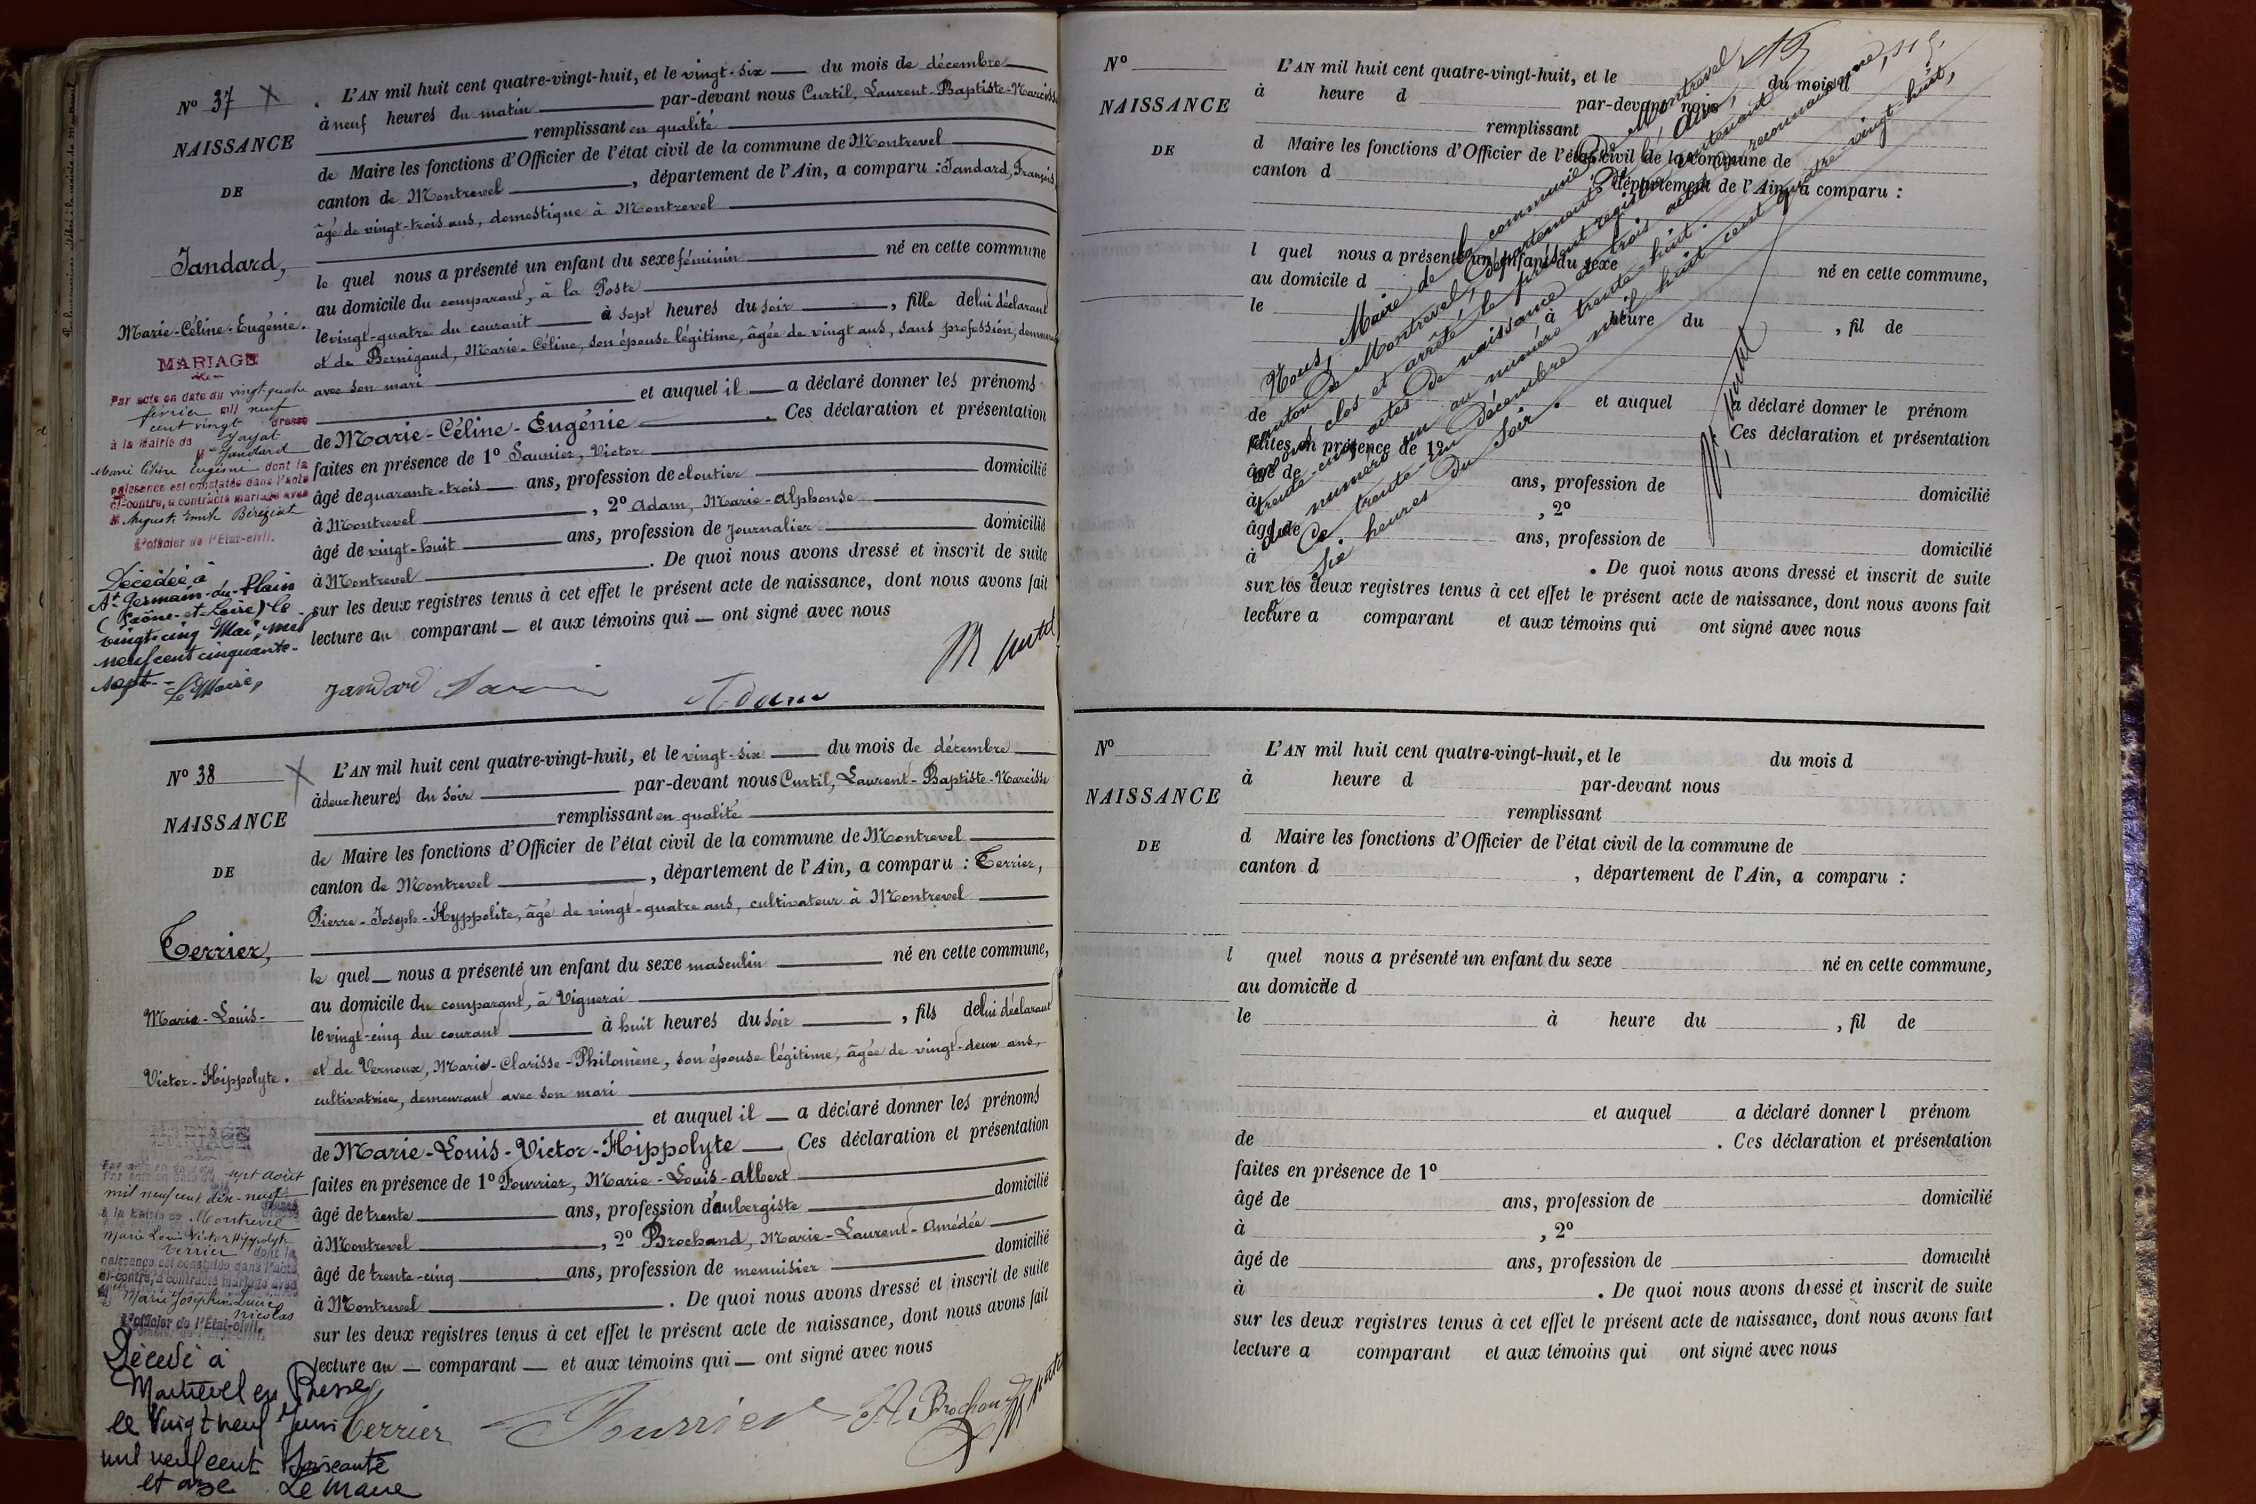 N° 37
NAISSANCE
DE
Jandard,
Marie-Céline-Eugénie.
MARIAGE
Par acte en date du vingt quatre
février mil neuf
cent vingt dressé
à la Mairie de Jayat
Jandard
Marie Céline Eugénie dont la
naissance est constatée dans l'acte
ci-contre, a contracté mariage avec
M. August Emile Béréziat
L'officier de l'Etat-civil.
Décédée à
St Germain-du-Plain
(Saône-et-Loire) le
vingt-cinq Mai, mil
neuf cent cinquante-
sept.-
Le Maire,
L'AN mil huit cent quatre-vingt-huit, et le vingt-six du mois de décembre
à neuf heures du matin par-devant nous Curtil, Laurent-Baptiste-Narcisse
remplissant en qualité
de Maire les fonctions d'Officier de l'état civil de la commune de Montrevel
canton de Montrevel, département de l'Ain, a comparu : Jandard, François
âgé de vingt-trois ans, domestique à Montrevel
le quel nous a présenté un enfant du sexe féminin né en cette commune
au domicile du comparant, à la Poste
le vingt-quatre du courant à sept heures du soir, fille de lui déclarant
et de Bernigaud, Marie-Céline, son épouse légitime, âgée de vingt ans, sans profession, demeurant
avec son mari
et auquel il a déclaré donner les prénoms
de Marie-Céline-Eugénie. Ces déclaration et présentation
faites en présence de 1° Saunier, Victor
âgé de quarante-trois ans, profession de cloutier domicilié
à Montrevel, 2° Adam, Marie-Alphonse
âgé de vingt-huit ans, profession de Journalier domicilié
à Montrevel. De quoi nous avons dressé et inscrit de suite
sur les deux registres tenus à cet effet le présent acte de naissance, dont nous avons fait
lecture au comparant et aux témoins qui ont signé avec nous
Jandard Adam
N° 38
NAISSANCE
DE
Terrier,
Marie-Louis-
Victor-Hippolyte.
MARIAGE
Par acte en date du sept août
mil neuf cent dix-neuf
à la Mairie de Montrevel
Marie Louis Victor Hippolyte
Terrier dont la
naissance est constatée dans l'acte
ci-contre, a contracté mariage avec
Marie Joséphine Lucie
Nicolas
L'officier de l'Etat-civil.
Décédé à
Montrevel en Bresse
le Vingt neuf Juin
mil neuf cent Soixante
et onze Le Maire
L'AN mil huit cent quatre-vingt-huit, et le vingt-six du mois de décembre
à deux heures du soir par-devant nous Curtil, Laurent-Baptiste-Narcisse
remplissant en qualité
de Maire les fonctions d'Officier de l'état civil de la commune de Montrevel
canton de Montrevel, département de l'Ain, a comparu : Terrier,
Pierre-Joseph-Hyppolite, âgé de vingt-quatre ans, cultivateur à Montrevel
le quel nous a présenté un enfant du sexe masculin né en cette commune,
au domicile du comparant, à Vignerai
le vingt-cinq du courant à huit heures du soir, fils de lui déclarant
et de Vernoux, Marie-Clarisse-Philomène, son épouse légitime, âgée de vingt-deux ans,
cultivatrice, demeurant avec son mari
et auquel il a déclaré donner les prénoms
de Marie-Louis-Victor-Hippolyte Ces déclaration et présentation
faites en présence de 1° Fourrier, Marie-Louis-Albert
âgé de trente ans, profession d'aubergiste domicilié
à Montrevel, 2° Brochand, Marie-Laurent-Amédée
âgé de trente-cinq ans, profession de menuisier domicilié
à Montrevel. De quoi nous avons dressé et inscrit de suite
sur les deux registres tenus à cet effet le présent acte de naissance, dont nous avons fait
lecture au comparant et aux témoins qui ont signé avec nous
Terrier Fourrier A Brochand
N°
NAISSANCE
DE
L'AN mil huit cent quatre-vingt-huit, et le du mois d
à heure d par-devant nous
remplissant
d Maire les fonctions d'Officier de l'état civil de la commune de
canton d , département de l'Ain, a comparu :
l quel nous a présenté un enfant du sexe né en cette commune,
au domicile d
le à heure du , fil de
et auquel a déclaré donner le prénom
de . Ces déclaration et présentation
faites en présence de 1°
âgé de ans, profession de domicilié
à , 2°
âgé de ans, profession de domicilié
à . De quoi nous avons dressé et inscrit de suite
sur les deux registres tenus à cet effet le présent acte de naissance, dont nous avons fait
lecture a comparant et aux témoins qui ont signé avec nous
Nous, Maire de la commune de Montrevel,
canton de Montrevel, département de l'Ain,
avons clos et arrêté le présent registre contenant
trente-cinq actes de naissance et trois actes de reconnaissance,
du numéro un au numéro trente-huit.
Ce trente-un décembre mil huit cent quatre-vingt-huit,
six heures du soir.
N°
NAISSANCE
DE
L'AN mil huit cent quatre-vingt-huit, et le du mois d
à heure d par-devant nous
remplissant
d Maire les fonctions d'Officier de l'état civil de la commune de
canton d , département de l'Ain, a comparu :
l quel nous a présenté un enfant du sexe né en cette commune,
au domicile d
le à heure du , fil de
et auquel a déclaré donner l prénom
de . Ces déclaration et présentation
faites en présence de 1°
âgé de ans, profession de domicilié
à , 2°
âgé de ans, profession de domicilié
à . De quoi nous avons dressé et inscrit de suite
sur les deux registres tenus à cet effet le présent acte de naissance, dont nous avons fait
lecture a comparant et aux témoins qui ont signé avec nous